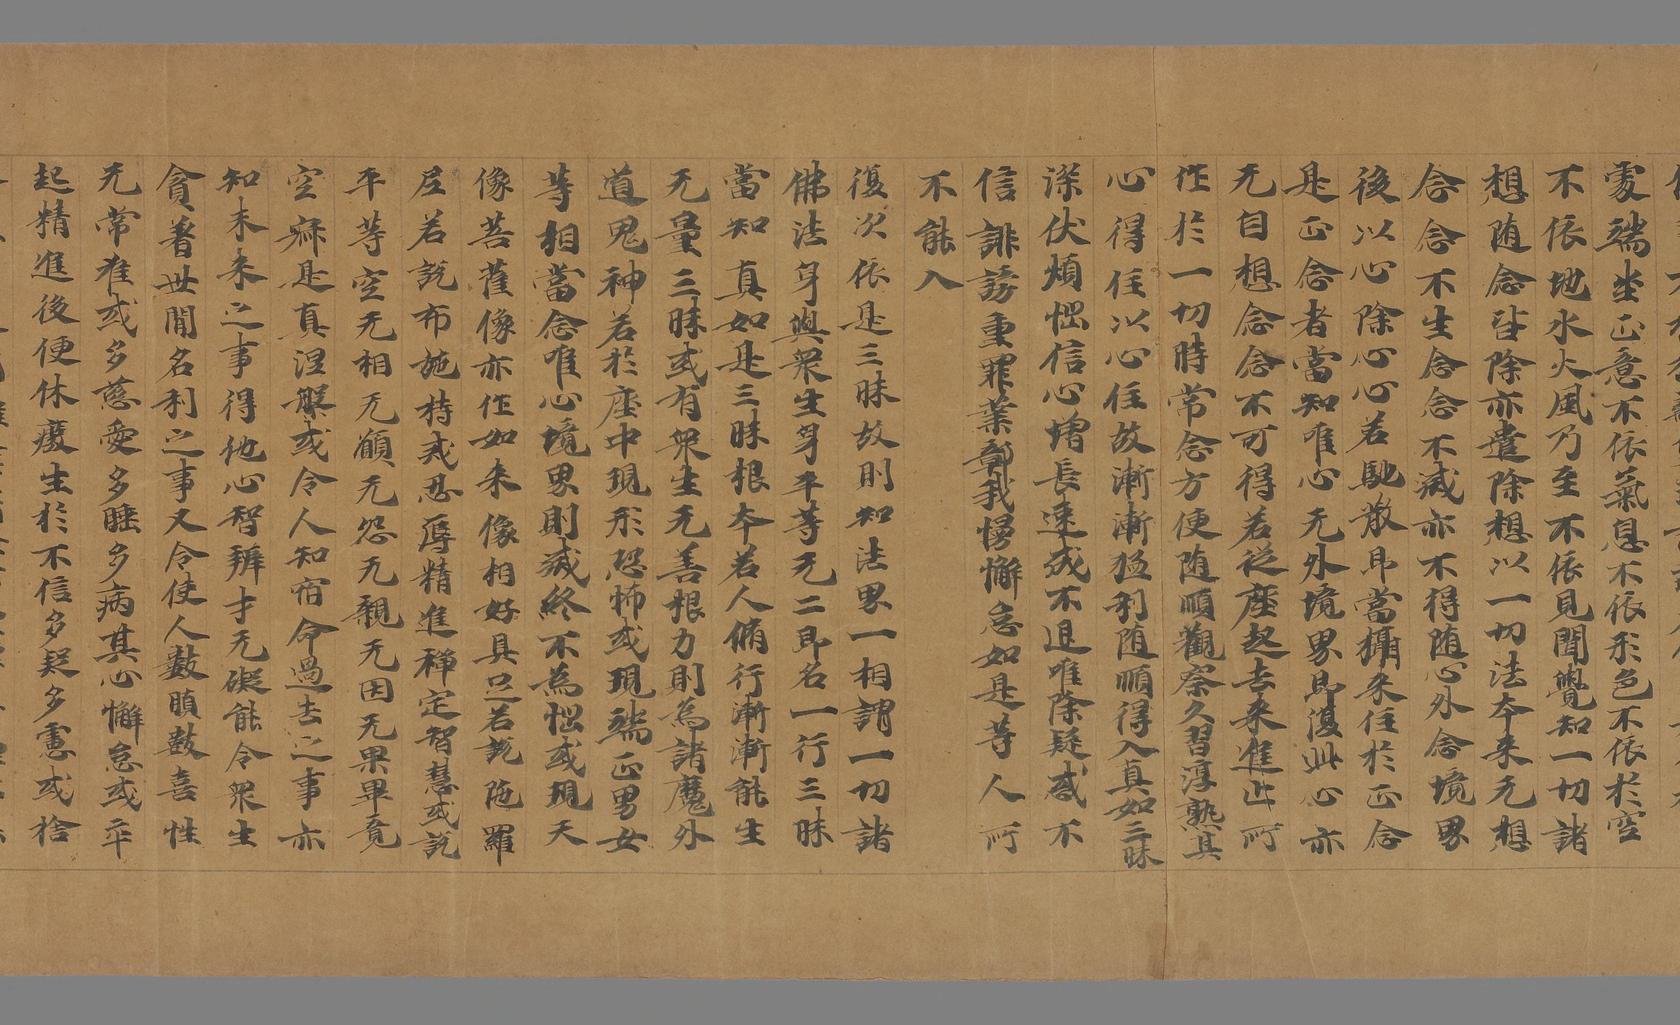 處端坐正意不依氣息不依形色不依於空
不依地水火風乃至不依見聞覺知一切諸
想随念皆除亦遣除想以一切法本来无想
念念不生念念不滅亦不得随心外念境界
後以心除心心若馳散即當攝来住於正念
是正念者當知唯心无外境界即復此心亦
无自想念念不可得若從座起去来進止所
作於一切時常念方便随順觀察久習淳熟其
心得住以心住故漸漸猛利随順得入真如三昧
深伏煩惱信心增長速成不退唯除疑惑不
信誹謗重罪業鄣我慢懈怠如是等人所
不能入
復次依是三昧故則知法界一相謂一切諸
佛法身與衆生身平等无二即名一行三昧
當知真如是三昧根本若人脩行漸漸能生
无量三昧或有衆生无善根力則為諸魔外
道鬼神若於座中現形恐怖或現端正男女
等相當念唯心境界則滅終不為惱或現天
像菩薩像亦作如来像相好具足若說陁羅
尼若說布施持戒忍辱精進禅定智慧或說
平等空无相无願无怨无親无因无果畢竟
空寂是真涅槃或令人知宿命過去之事亦
知未来之事得他心智辯才无礙能令衆生
貪著世間名利之事又令使人數瞋數喜性
无常准或多慈愛多睡多病其心懈怠或卒
起精進後便休廢生於不信多疑多慮或捨